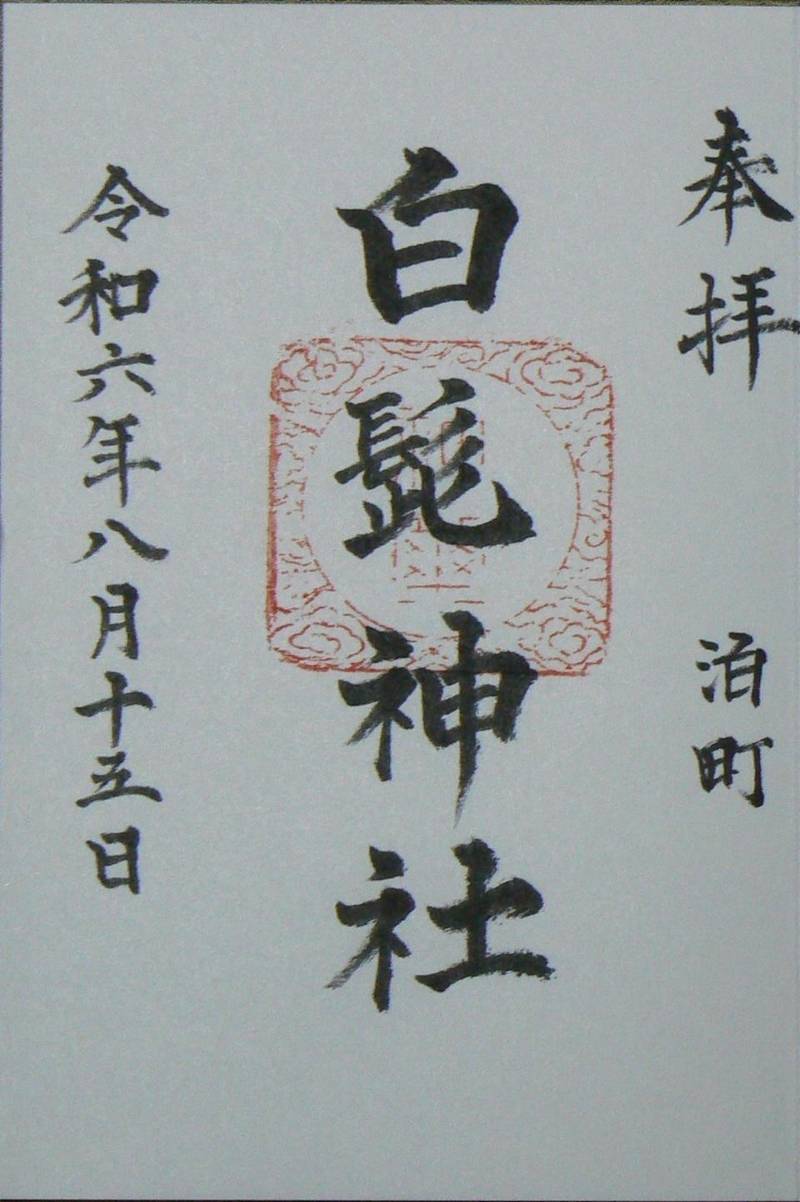 奉拝 泊町
白髭神社
令和六年八月十五日